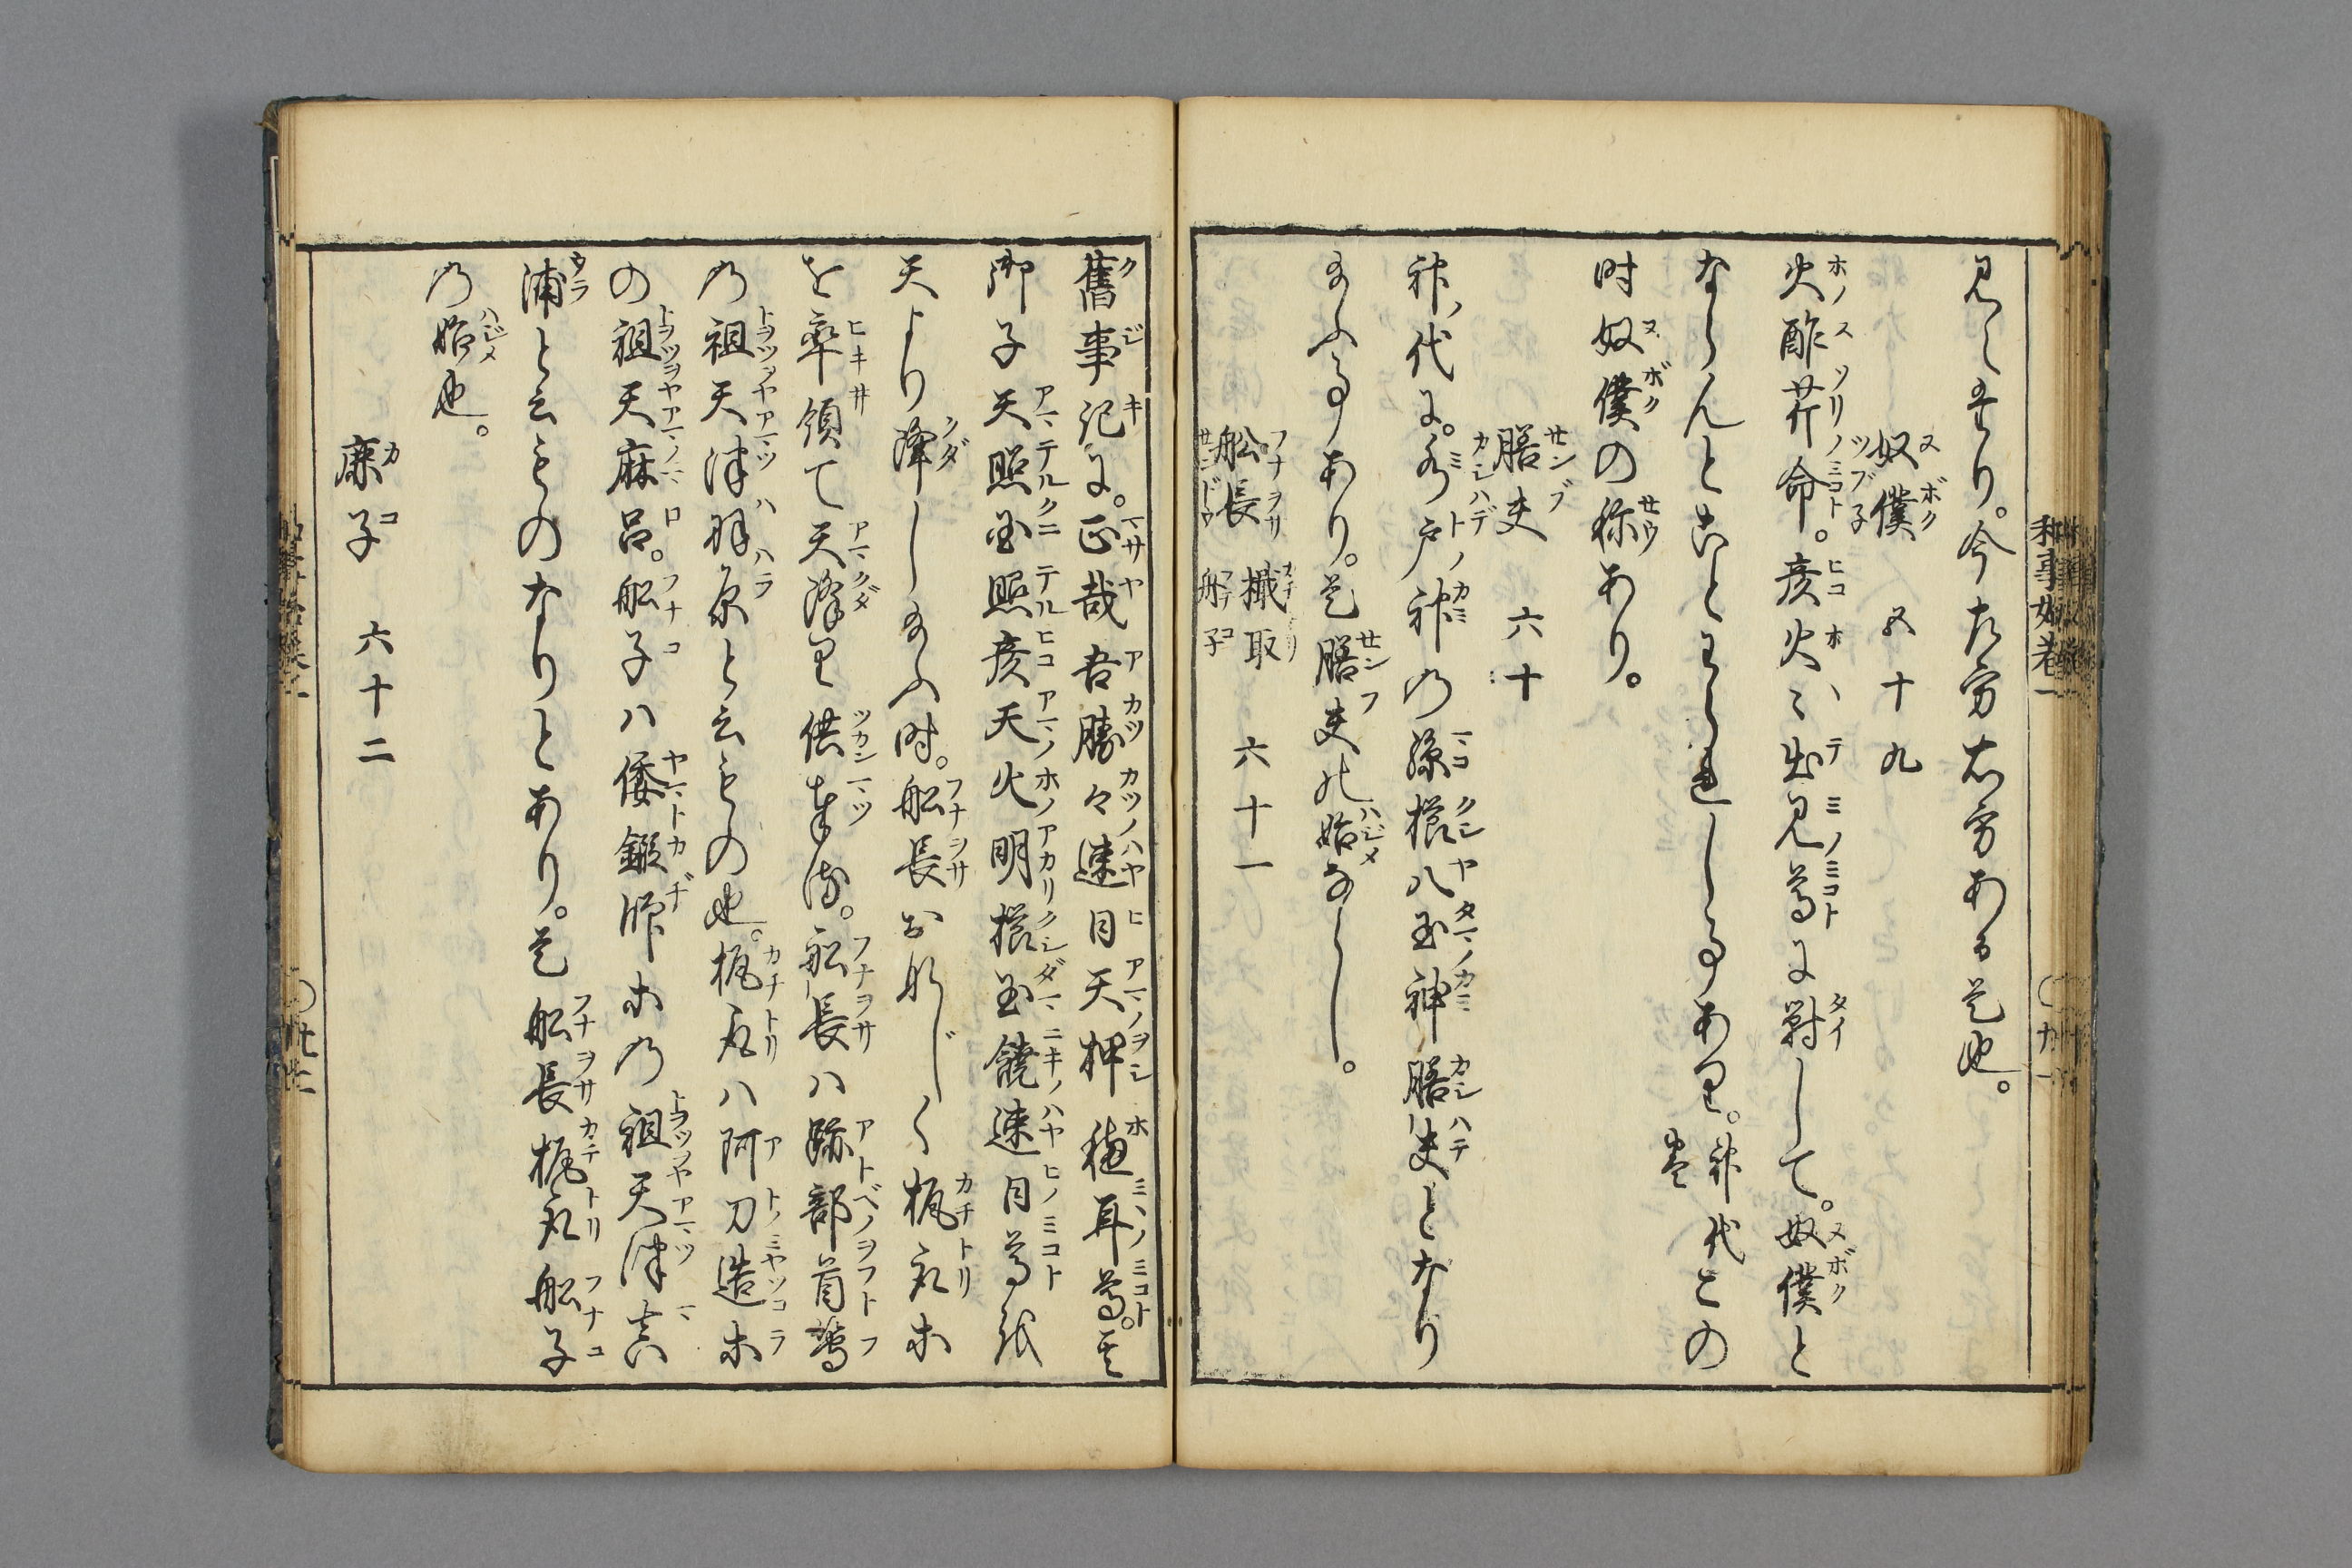 見えたり。今左方右方あるは是也。
奴僕 五十九
火酢芹命。彦火々出見尊に対して。奴僕と
ならんとこひとわられし事あり。神代巻この
時奴僕の称あり。
膳夫 六十
神代に。水戸神の孫櫛八玉神膳夫となり
給ふ事あり。是膳夫の始なるらし。
船長 檝取 船子 六十一
舊事記に。正哉吾勝々速日天押穂耳尊。其
御子天照国照彦天火明櫛玉饒速日尊を
天より降し給ふ時。船長おなじく梶取等
を率領て天降り供奉す。船長ハ跡部首等
の祖天津羽原と云もの也。梶取ハ阿刀造等
の祖天麻呂。船子ハ倭鍛師等の祖天津真
浦と云ものなりとあり。是船長梶取船子
の始也。
廉子 六十二
和事始巻一